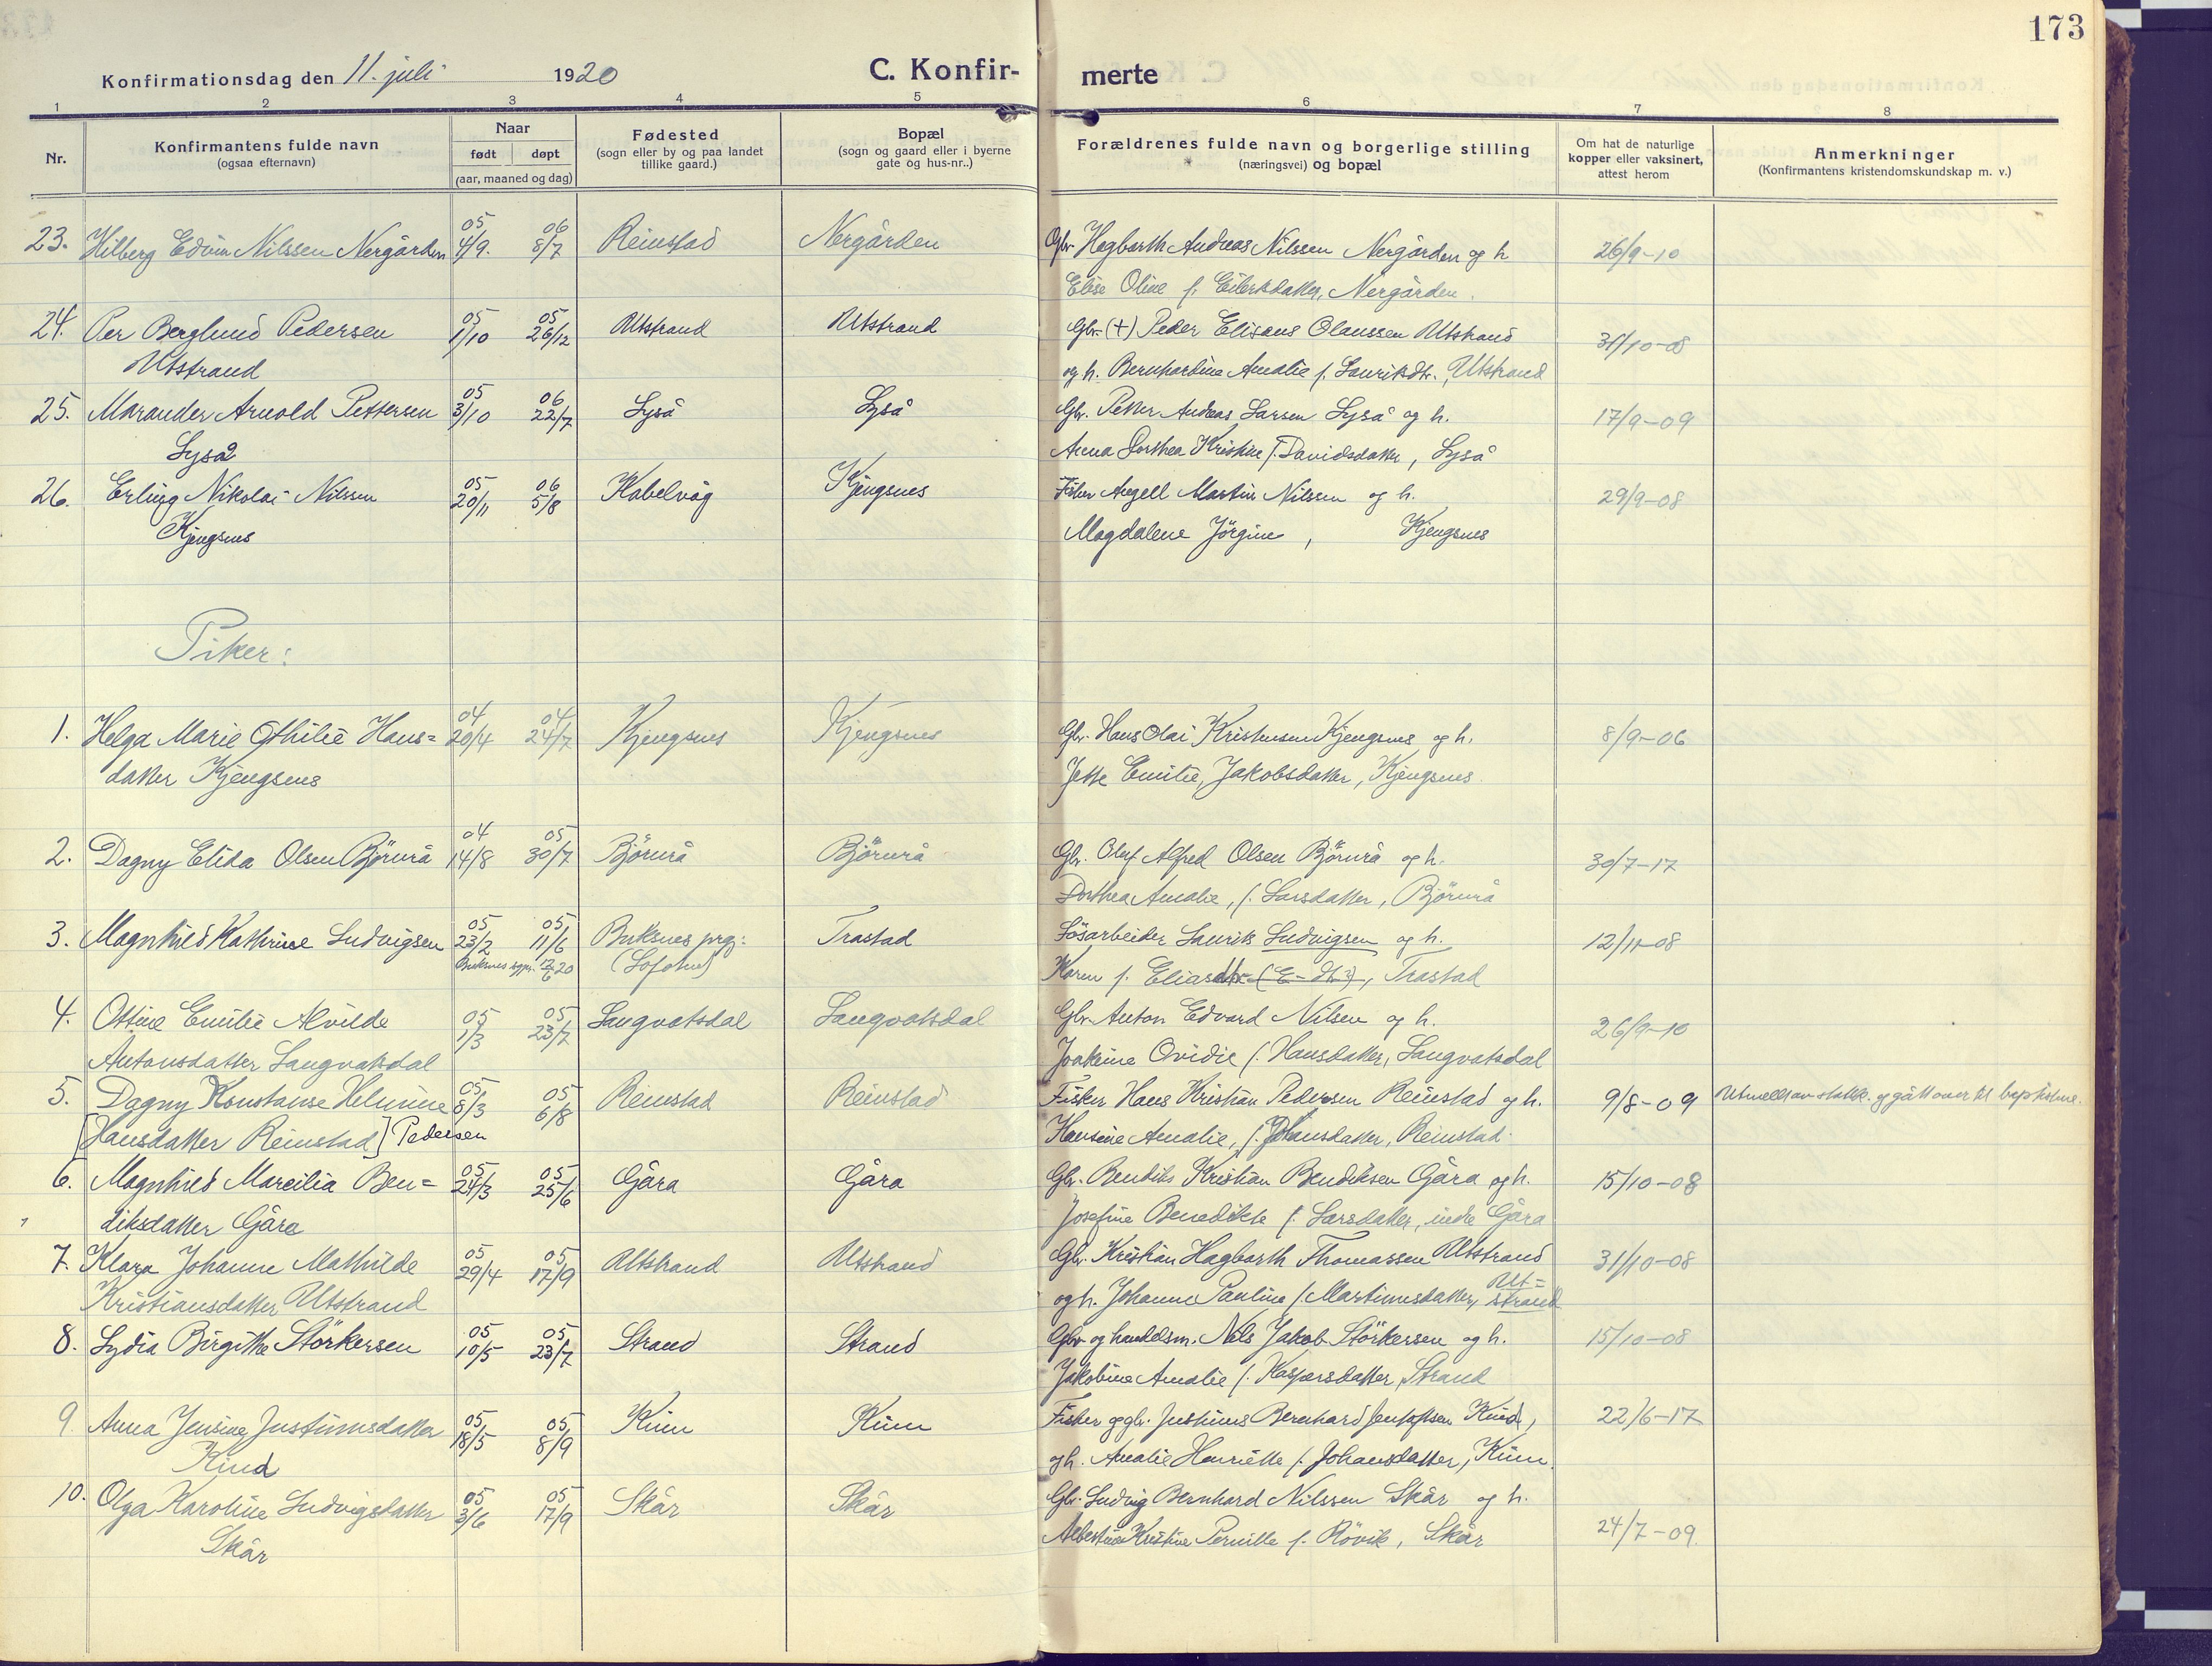 173
Konfirmationsdag den 11. juli 1920 C. Konfir- merte
1 2 3 4 5 6 7 8
Nr.
Konfirmantens fulde navn
(ogsaa efternavn)
Naar
født døpt
(aar, maaned og dag)
Fødested
(sogn eller by og paa landet
tillike gaard.)
Bopæl
(sogn og gaard eller i byerne
gate og hus-nr..)
Forældrenes fulde navn og borgerlige stilling
(næringsvei) og bopæl
Om hat de naturlige
kopper eller vaksinert,
attest herom
Anmerkninger
(Konfirmantens kristendomskundskap m. v.)
05 06
23. Hilberg Edvin Nilssen Nergården 4/9. 8/7 Reinstad Nergården Gbr. Hagbarth Andreas Nilssen Nergården og h 26/9-10
Elise Oline f. Eilertsdatter, Nergården.
05 05
24. Per Berglund Pedersen 1/10 26/12 Utstrand Utstrand Gbr. (+) Peder Elisæus Olaussen Utstrand 31/10-08
Utstrand og h. Bernhardine Amalie f. Lauritsdtr., Utstrand
05 06
25. Marander Arnold Pettersen 3/10 22/7 Lyså Lyså Gbr. Petter Andreas Larsen Lyså og h. 17/9-09
Lyså Anna Dorthea Kristine f. Davidsdatter, Lyså
05 06
26. Erling Nikolai Nilssen 20/11 5/8 Kabelvåg Kjengsnes Fisker Angell Martin Nilssen og h. 29/9-08
Kjengsnes Magdalene Jørgine, Kjengsnes
Piker:
04 04
1. Helga Marie Othilie Hans= 20/4 24/7 Kjengsnes Kjengsnes Gbr. Hans Olai Kristensen Kjengsnes og h. 8/9-06
datter Kjengsnes Jette Emilie, Jakobsdatter, Kjengsnes.
04 05
2. Dagny Elida Olsen Björnrå 14/8 30/7 Björnrå Björnrå Gbr. Oluf Alfred Olsen Björnrå og h. 30/7-17
Dorthea Amalie, f. Larsdatter, Björnrå
05 05
3. Magnhild Kathrine Ludvigsen 23/2 11/6 Buksnes prgj: Trastad Løsarbeider Laurits Ludvigsen og h. 12/11-08
12/6 20 (Lofoten) Karen f. Eliasdtr. (E- dtr), Trastad
05 05
4. Ottine Emilie Alvilde 1/3 23/7 Langvatsdal Langvatsdal Gbr. Anton Edvard Nilsen og h. 26/9-10
Antonsdatter Langvatsdal Joakime Ovidie f. Hansdatter, Langvatsdal
05 05
5. Dagny Konstanse Helmine 8/3 6/8 Reinstad Reinstad Fisker Hans Kristian Pedersen Reinstad og h. 9/8-09 Utmeldt av statsk. og gått over til baptistme.
[Hansdatter Reinstad] Pedersen Hansine Amalie, f. Johansdatter, Reinstad.
05 05
6. Magnhild Marcilia Ben= 24/3 25/6 Gåra Gåra Gbr. Bendiks Kristian Bendiksen Gåra og h. 15/10-08
diksdatter Gåra Josefine Benedikte f. Larsdatter, indre Gåra
05 05
7. Klara Johanne Mathilde 29/4 17/9 Utstrand Utstrand Gbr. Kristian Hagbarth Thomassen Utstrand 31/10-08
Kristiansdatter Utstrand og h. Johanne Pauline f. Martinusdatter, Ut=
strand
05 05
8. Lydia Birgitte Störkersen 10/5 23/7 Strand Strand Gbr. og handelsm. Nils Jakob Störkersen og h. 15/10-08
Jakobine Amalie f. Kaspersdatter, Strand
05 05
9. Anna Jensine Justinusdatter 18/5 8/9 Kinn Kinn Fisker og gbr. Justinus Bernhard Jentoftsen Kind, 22/6-17
Kind og h. Amalie Henriette f. Johansdatter, Kinn.
05 05
10. Olga Karoline Ludvigsdatter 3/6 17/9 Skår Skår Gbr. Ludvig Bernhard Nilssen Skår og h. 24/7-09.
Skår Albertine Kristine Pernille f. Rövik, Skår